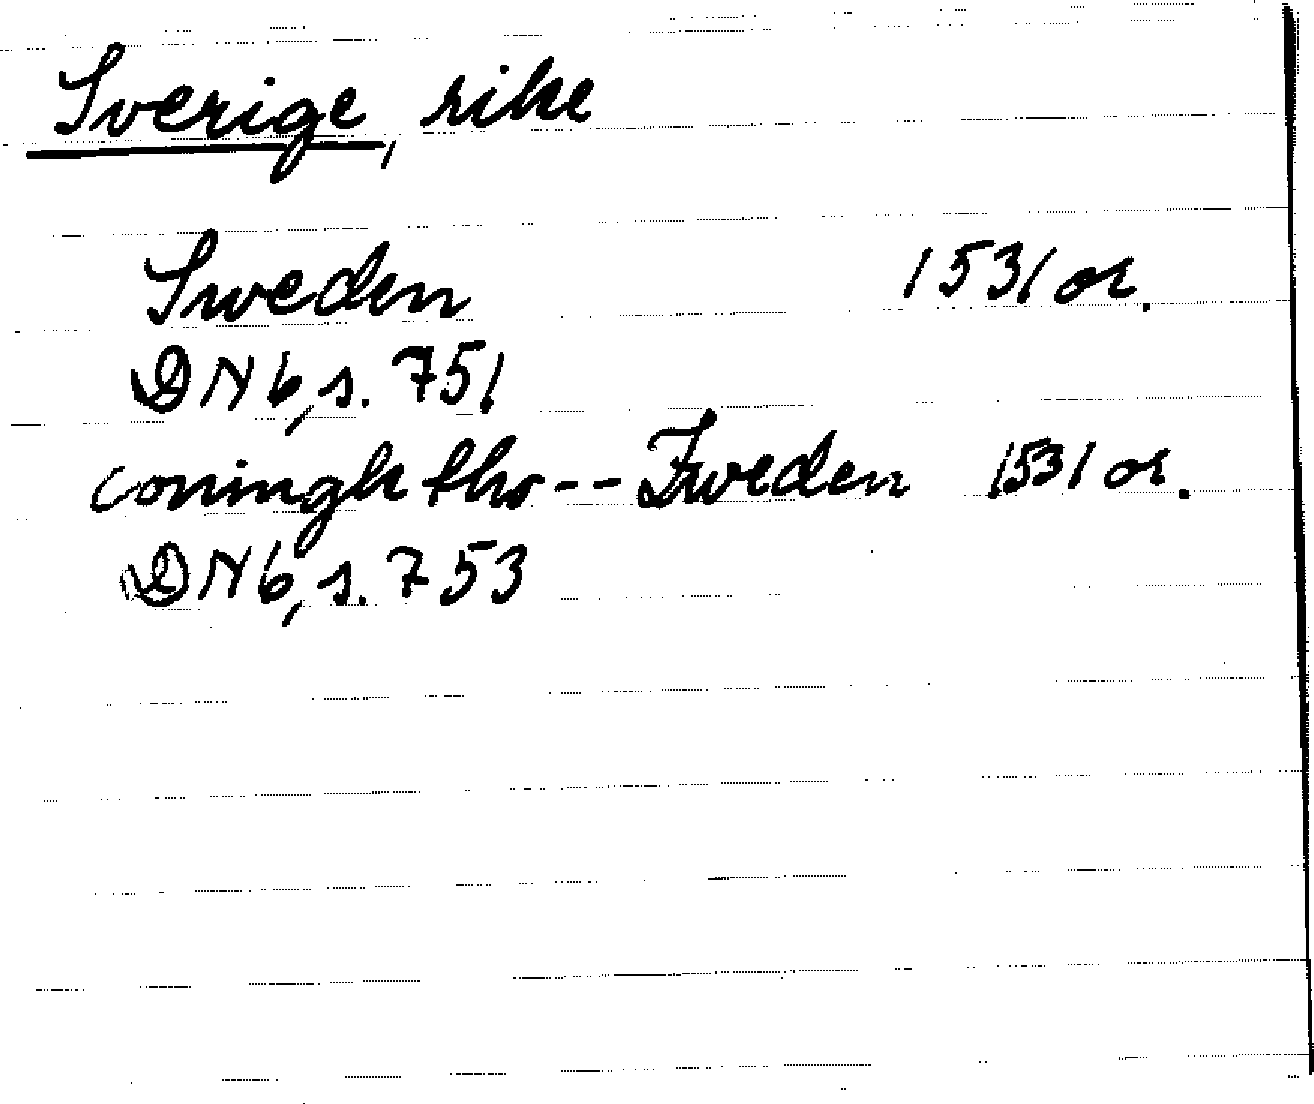 Sverige, rike
Sweden 1531 or.
DN 6, s. 751
coningh tho -- Zweden 1531 or.
DN 6, s. 753